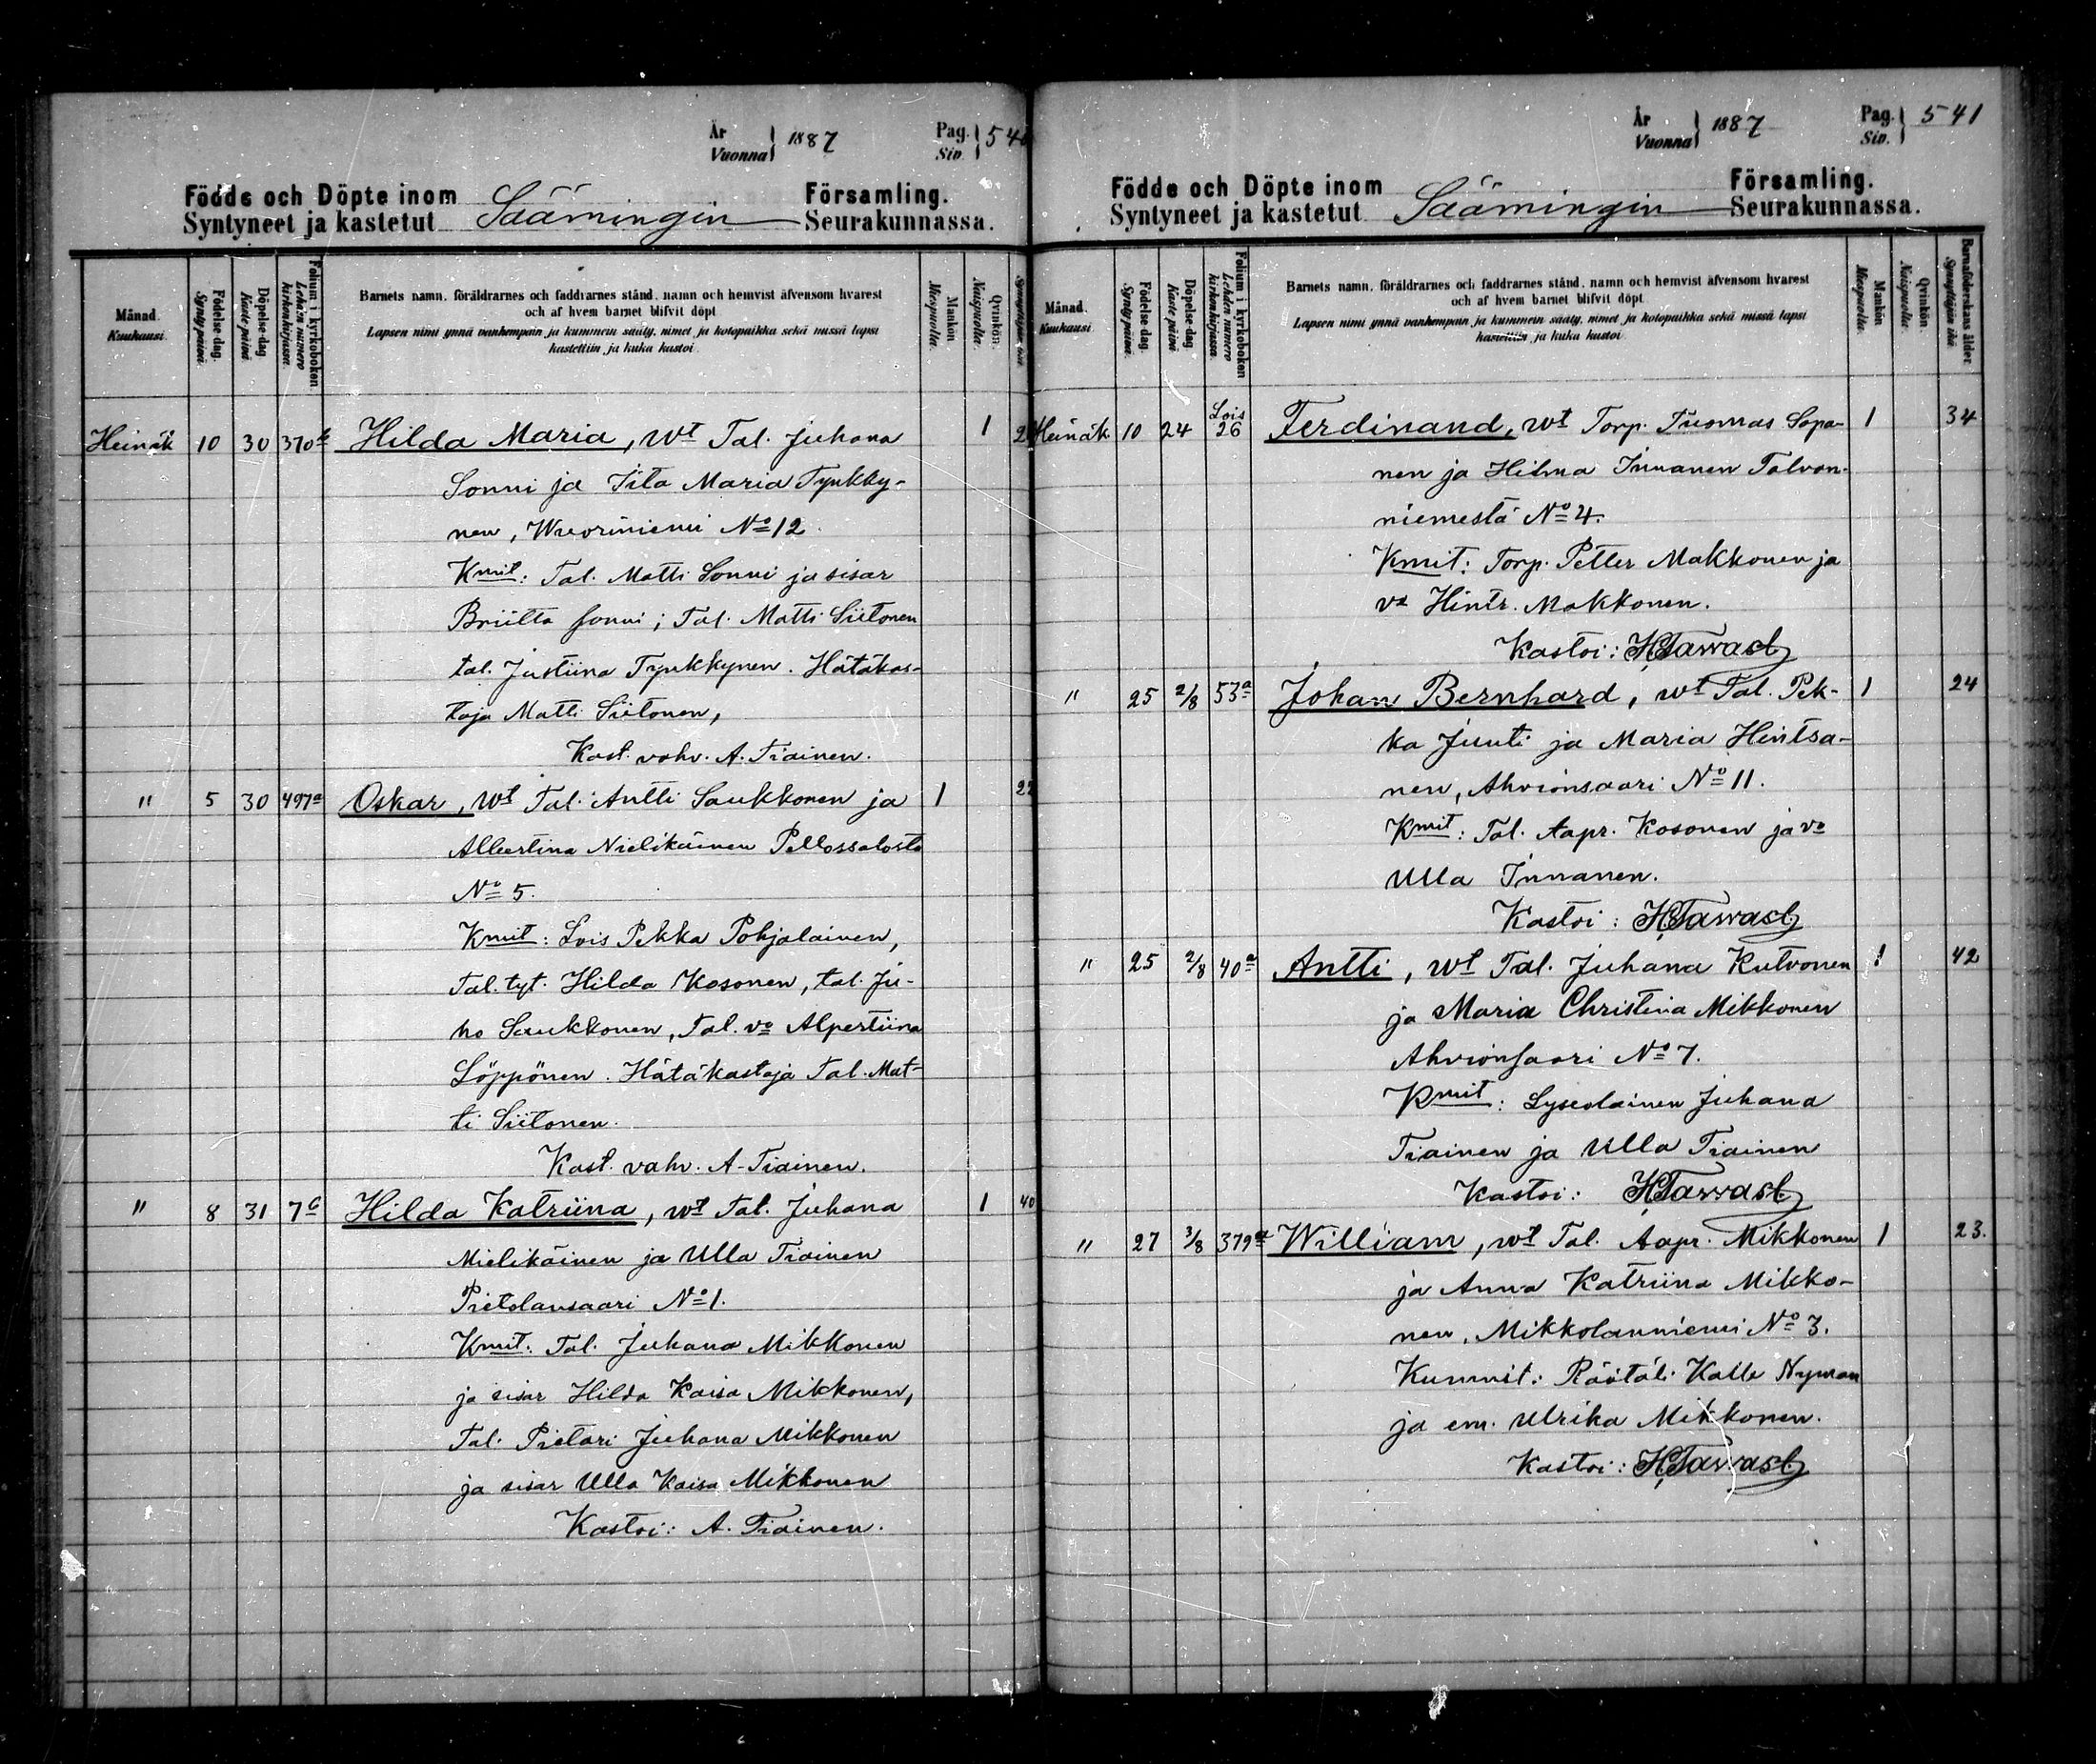 År
Vuonna } 1887
Pag.
Siv. } 540
Födde och Döpte inom
Syntyneet ja kastetut Säämingin Församling.
Seurakunnassa.
Månad.
Kuukausi.
Födelse-dag.
Syntypäivä.
Döpelse-dag
Kastepäivä.
Folium i kyrkoboken.
Lehden numero
kirkonkirjassa.
Barnets namn, föräldrarnes och faddrarnes stånd, namn och hemvist äfvensom hvarest
och af hvem barnet blifvit döpt
Lapsen nimi ynnä vanhempain ja kummein sääty, nimet ja kotopaikka sekä missä lapsi
kastettiin ja kuka kastoi.
Mankön
Miespuolia.
Qvinkön.
Naispuolia.
Heinäk 10 30 370 b Hilda Maria, wt Tal. Juhana 1
Sonni ja Iita Maria Tynkky-
nen, Wuoriniemi No 12.
Kmit: Tal. Matti Sonni ja sisar
Briitta Sonni; Tal. Matti Siitonen
tal. Justiina Tynkkynen. Hätäkas-
taja Matti Siitonen,
Kast. vahv. A. Tiainen.
" 5 30 497 a Oskar, wt Tal. Antti Saukkonen ja 1 22
Albertina Nielikäinen Pellossalosta
No 5.
Kmit: Lois Pekka Pohjalainen,
Tal. tyt. Hilda Kosonen, tal. Ju-
ho Saukkonen, Tal. vo Alpertiina
Löppönen. Hätäkastaja Tal. Mat-
ti Siitonen.
Kast. vahv. A. Tiainen.
" 8 31 7 c Hilda Katriina, wt Tal. Juhana 1 40
Mielikäinen ja Ulla Tiainen
Pietolansaari No 1.
Kmit: Tal. Juhana Mikkonen
ja sisar Hilda Kaisa Mikkonen,
Tal. Pietari Juhana Mikkonen
ja sisar Ulla Kaisa Mikkonen
Kastoi: A. Tiainen.
År
Vuonna } 1887
Pag.
Siv. } 541
Födde och Döpte inom
Syntyneet ja kastetut Säämingin Församling.
Seurakunnassa.
Månad.
Kuukausi.
Födelse-dag.
Syntypäivä.
Döpelse-dag
Kastepäivä
Folium i kyrkoboken
Lehden numero
kirkonkirjassa.
Barnets namn, föräldrarnes och faddrarnes stånd, namn och hemvist äfvensom hvarest
och af hvem barnet blifvit döpt
Lapsen nimi ynnä vanhempain ja kummein sääty, nimet ja kotopaikka sekä missä lapsi
kastettiin ja kuka kastoi
Mankön
Miespuolia.
Qvinkön.
Naispuolia.
Barnaföderskans ålder.
Synnyttäjän ikä.
Heinäk 10 24 Lois 26 Ferdinand, wt Torp. Tuomas Sopa- 1 34
nen ja Hilma Innanen Talvon-
niemestä No 4.
Kmit: Torp. Petter Makkonen ja
vo Hintr. Makkonen.
Kastoi: KTawast
" 25 2/8 53 a Johan Bernhard, wt Tal. Pek- 1 24
ka Juuti ja Maria Hintsa-
nen, Ahvionsaari No 11.
Kmit: Tal. Aapr. Kosonen ja vo
Ulla Innanen.
Kastoi: KTawast
" 25 2/8 40 a Antti, wt Tal. Juhana Kutvonen 1 42
ja Maria Christina Mikkonen
Ahvionsaari No 7.
Kmit: Lyseolainen Juhana
Tiainen ja Ulla Tiainen
Kastoi: KTawast
" 27 3/8 379 a William, wt Tal. Aapr. Mikkonen 1 23.
ja Anna Katriina Mikko-
nen, Mikkolanniemi No 3.
Kummit: Räätäli Kalle Nyman
ja em. Ulrika Mikkonen.
Kastoi: KTawast